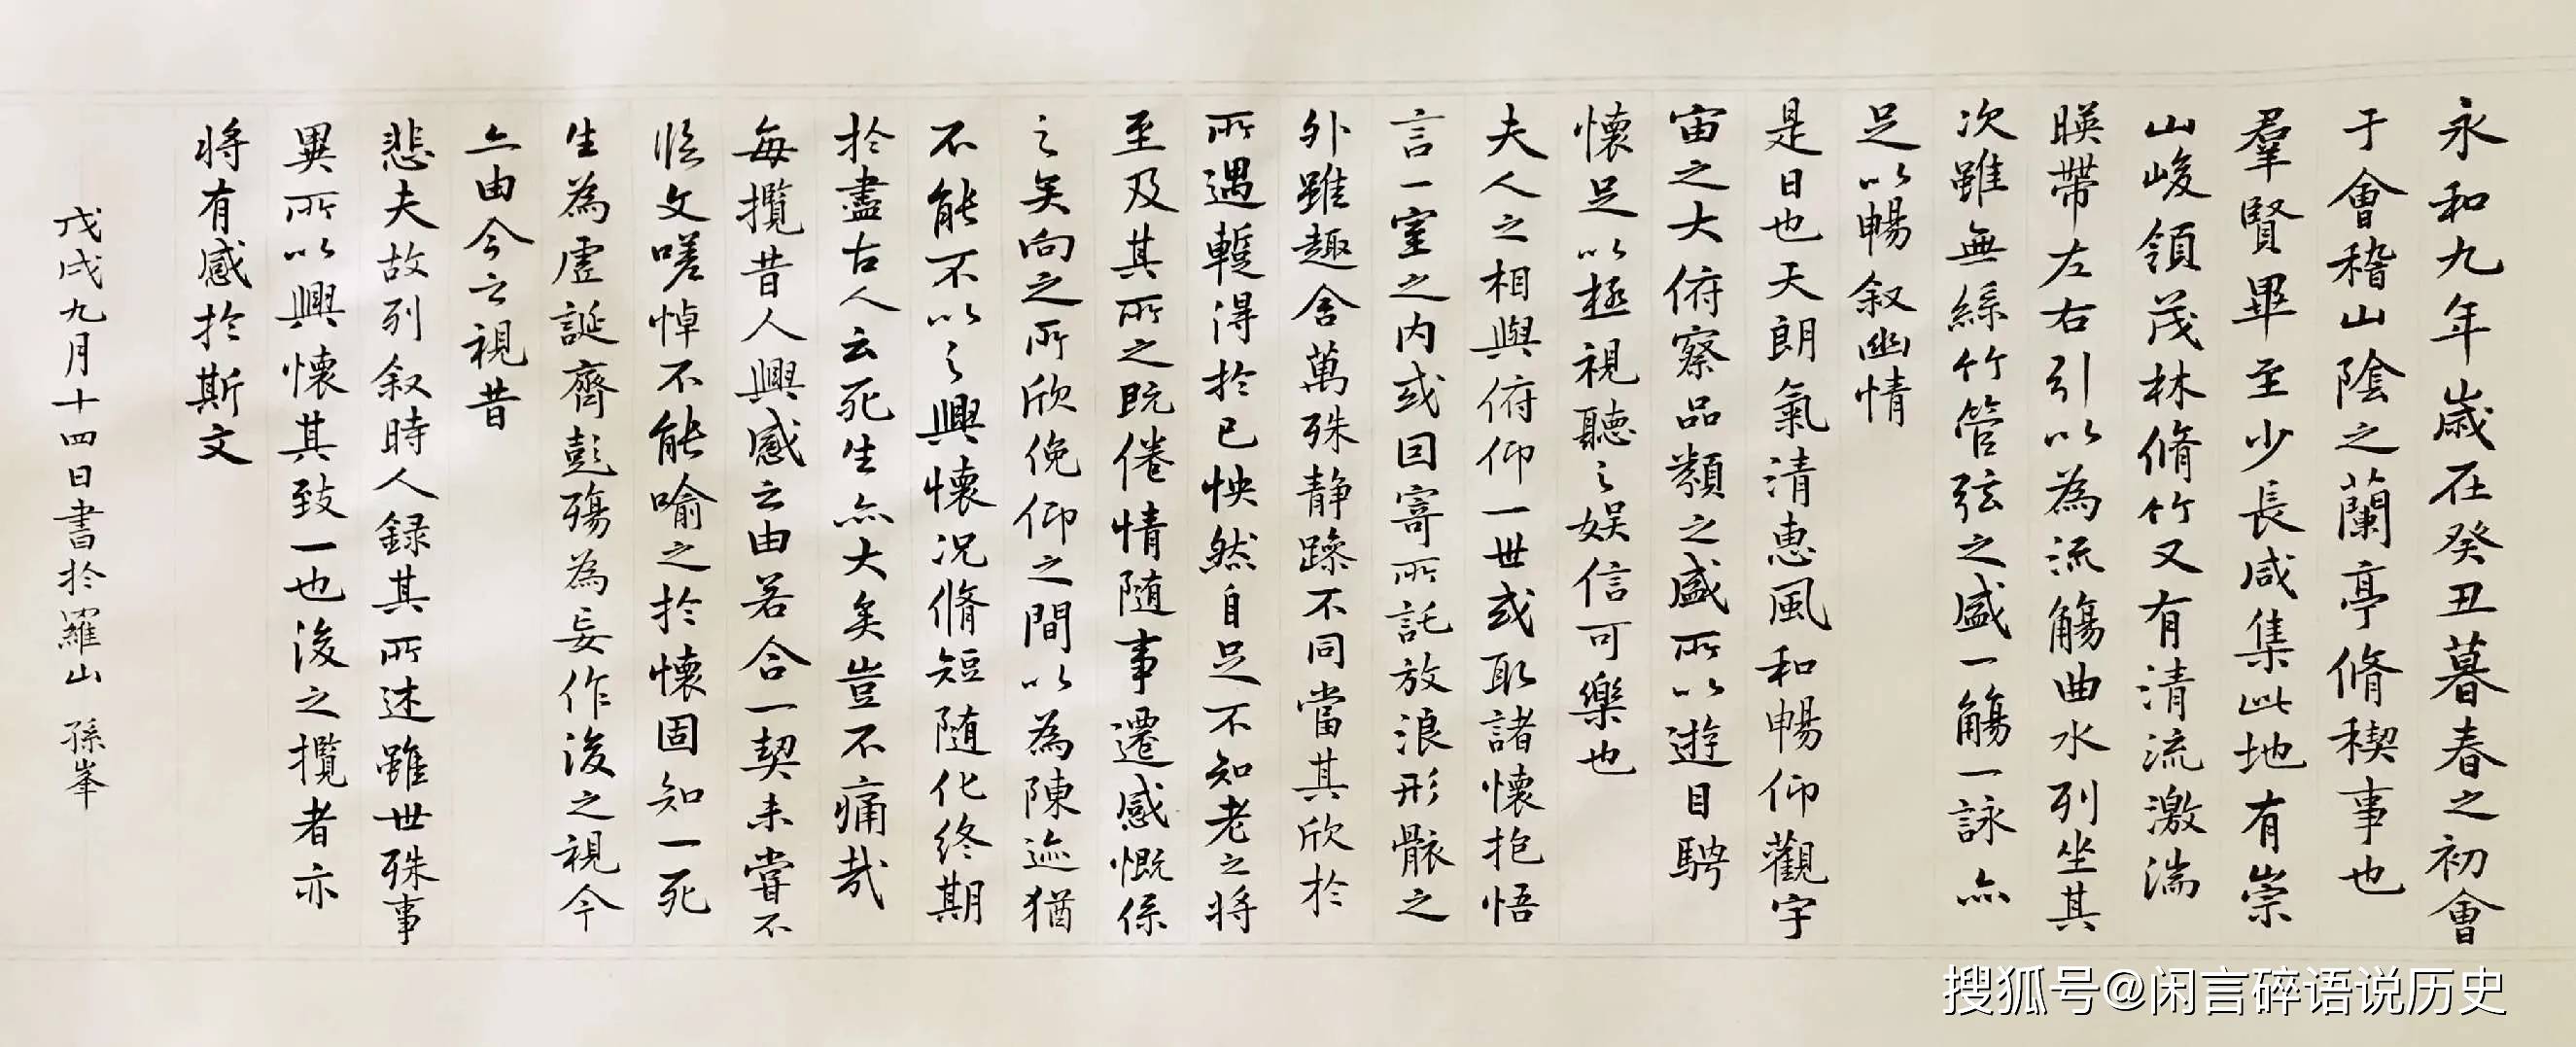 永和九年歲在癸丑暮春之初會
于會稽山陰之蘭亭脩稧事也
羣賢畢至少長咸集此地有崇
山峻領茂林脩竹又有清流激湍
暎帶左右引以為流觴曲水列坐其
次雖無絲竹管弦之盛一觴一詠亦
足以暢叙幽情
是日也天朗氣清惠風和暢仰觀宇
宙之大俯察品類之盛所以遊目騁
懷足以極視聽之娛信可樂也
夫人之相與俯仰一世或取諸懷抱悟
言一室之内或因寄所託放浪形骸之
外雖趣舍萬殊静躁不同當其欣於
所遇蹔得於己怏然自足不知老之將
至及其所之既倦情随事遷感慨係
之矣向之所欣俛仰之間以為陳迹猶
不能不以之興懷況脩短随化终期
於盡古人云死生亦大矣豈不痛哉
每攬昔人興感之由若合一契未嘗不
臨文嗟悼不能喻之於懷固知一死
生為虛誕齊彭殤為妄作後之視今
亦由今之視昔
悲夫故列叙時人録其所述雖世殊事
異所以興懷其致一也後之攬者亦
將有感於斯文
戊戌九月十四日書於羅山 孫峯
搜狐号@闲言碎语说历史